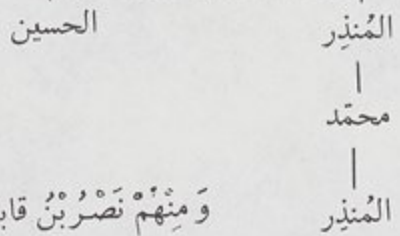 المُنذِر الحسين
محمّد
المُنذِر وَمِنْهُمْ نَصْرُ بْنُ